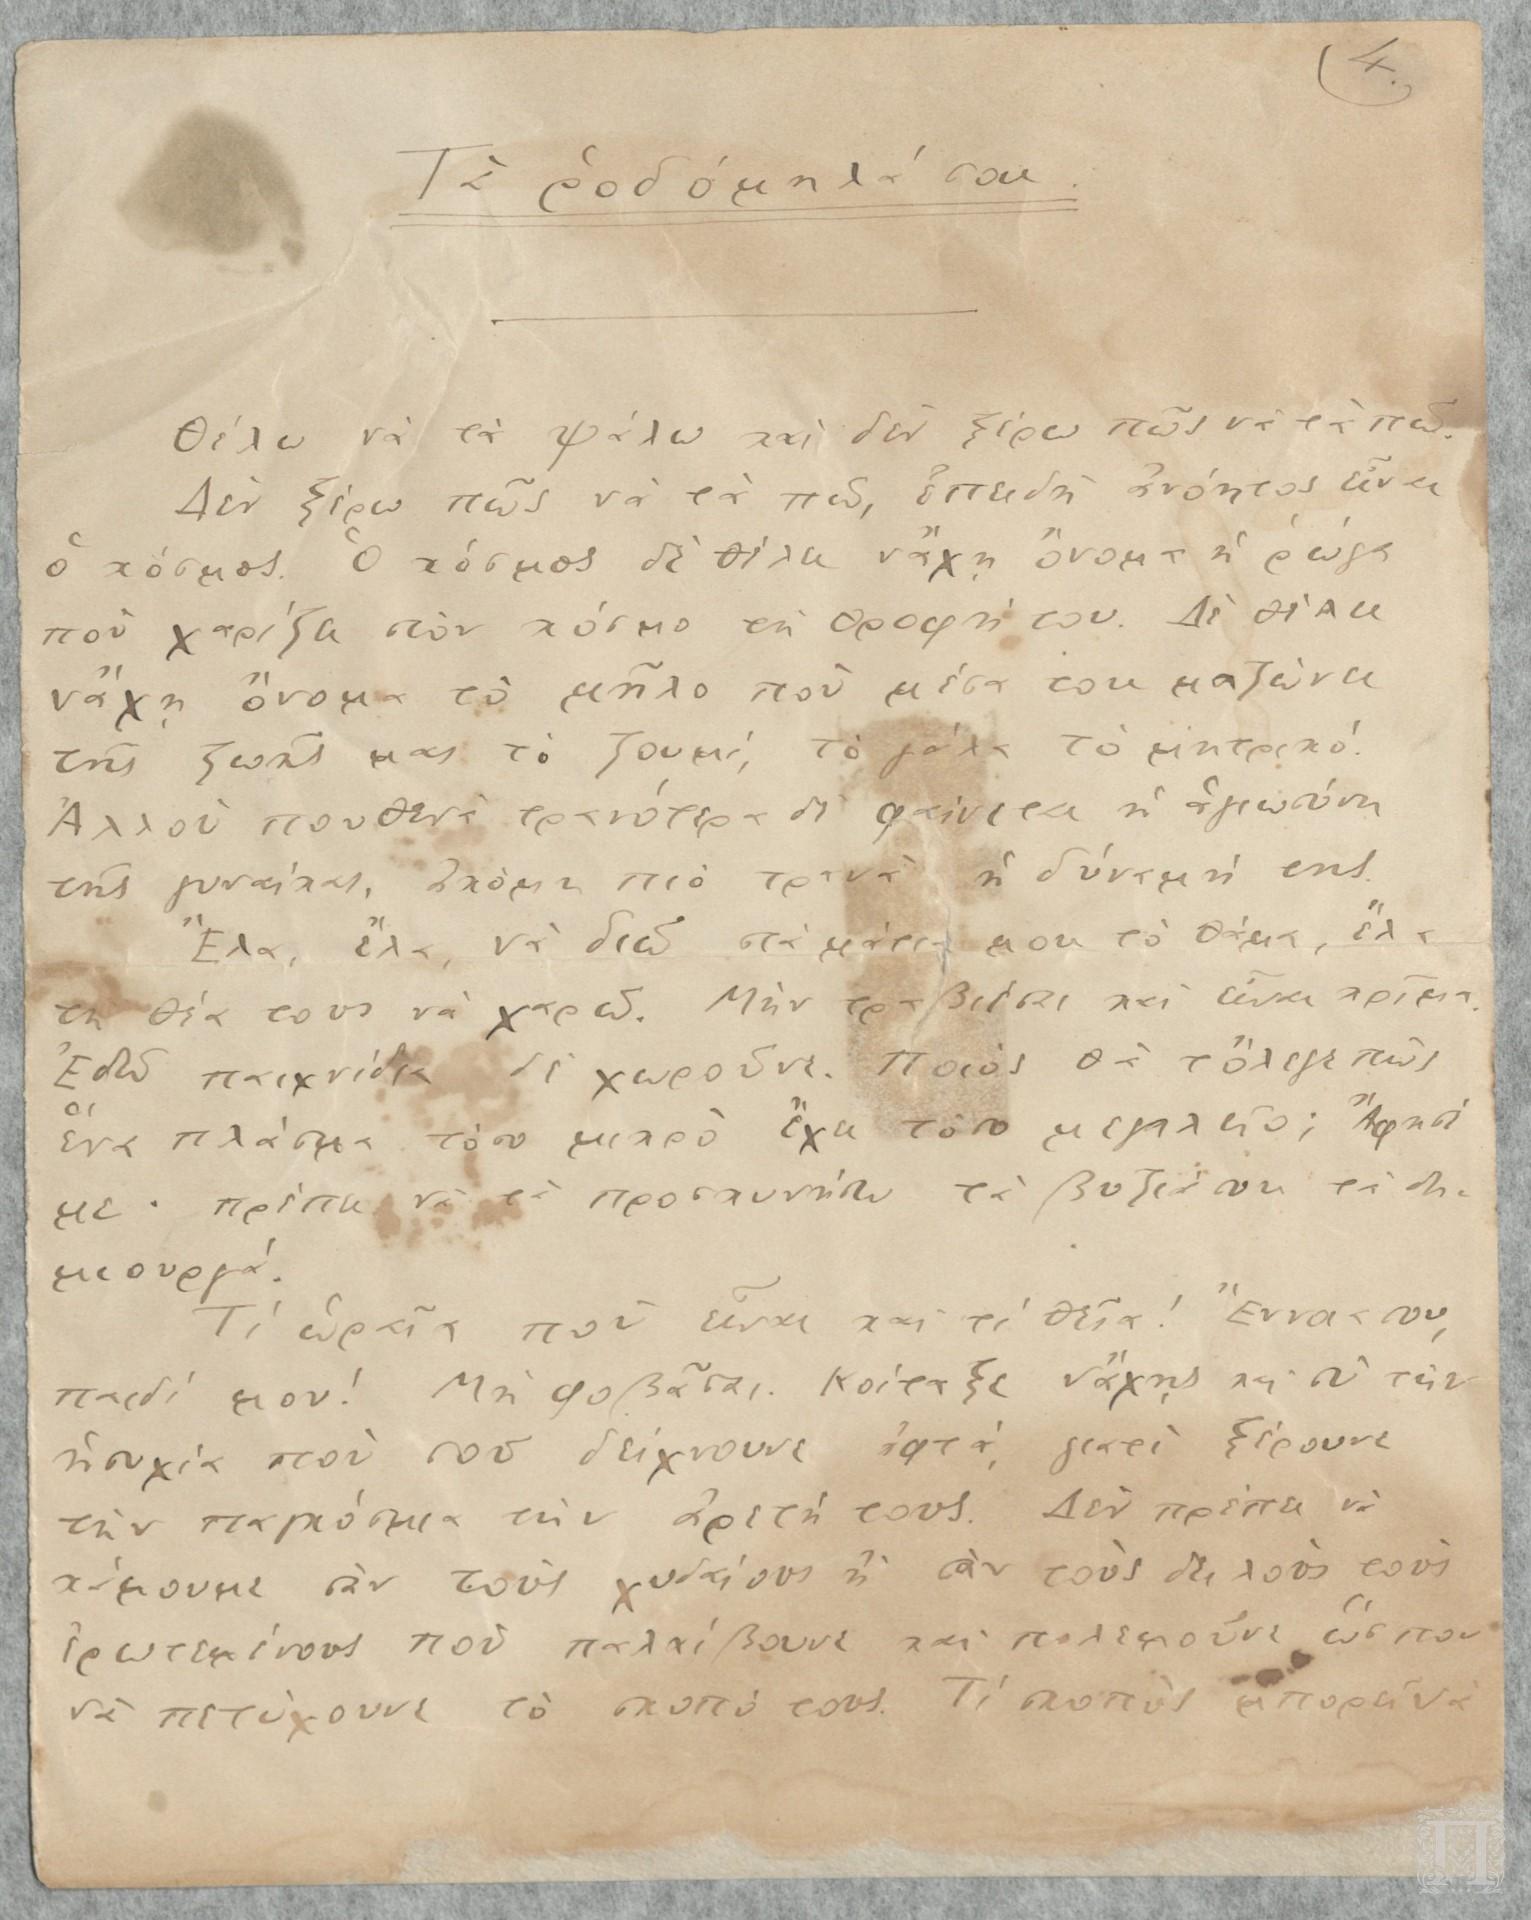 4.
Τὰ ῥοδόμηλά σου.
Θέλω νὰ τὰ ψάλω καὶ δὲν ξέρω πῶς νὰ τὰ πῶ.
Δὲν ξέρω πῶς νὰ τὰ πῶ, ἐπειδὴ ἀνόητος εἶναι
ὁ κόσμος. Ὁ κόσμος δὲ θέλει νἄχῃ ὄνομα ἡ ῥώγα
ποὺ χαρίζει στὸν κόσμο τὴ θροφή του. Δὲ θέλει
νἄχῃ ὄνομα τὸ μῆλο ποὺ μέσα του μαζώνει
τῆς ζωῆς μας τὸ ζουμί, τὸ γάλα τὸ μητρικό.
Ἀλλοῦ πουθενὰ τρανότερα δὲ φαίνεται ἡ ἁγιωσύνη
τῆς γυναίκας, ἀκόμη πιὸ τρανὰ ἡ δύναμή της.
Ἔλα, ἔλα, νὰ διῶ στὰ μάτια μου τὸ θάμα, ἔλα
τὴ θέα τους νὰ χαρῶ. Μὴν τραβιέσαι καὶ εἶναι κρῖμα.
Ἐδῶ παιχνίδια δὲ χωροῦνε. Ποιὸς θὰ τὄλεγε πῶς
ἕνα πλάσμα τόσο μικρὸ ἔχει τόσο μεγαλεῖο; Ἄφησέ
με· πρέπει νὰ τὰ προσκυνήσω τὰ βυζιά σου τὰ δη-
μιουργά.
Τί ὡραῖα ποὺ εἶναι καὶ τί θεῖα! Ἔννοια σου,
παιδί μου! Μὴ φοβᾶσαι. Κοίταξε νἄχῃς καὶ σὺ τὴν
ἡσυχία ποὺ σοῦ δείχνουνε ἀφτά, γιατὶ ξέρουνε
τὴν παγκόσμια τὴν ἀρετή τους. Δὲν πρέπει νὰ
κάμουμε σὰν τοὺς χυδαίους ἢ σὰν τοὺς δειλοὺς τοὺς
ἐρωτεμένους ποὺ παλαίβουνε καὶ πολεμοῦνε ὥσπου
νὰ πετύχουνε τὸ σκοπό τους. Τί σκοπὸς μπορεῖ νὰ